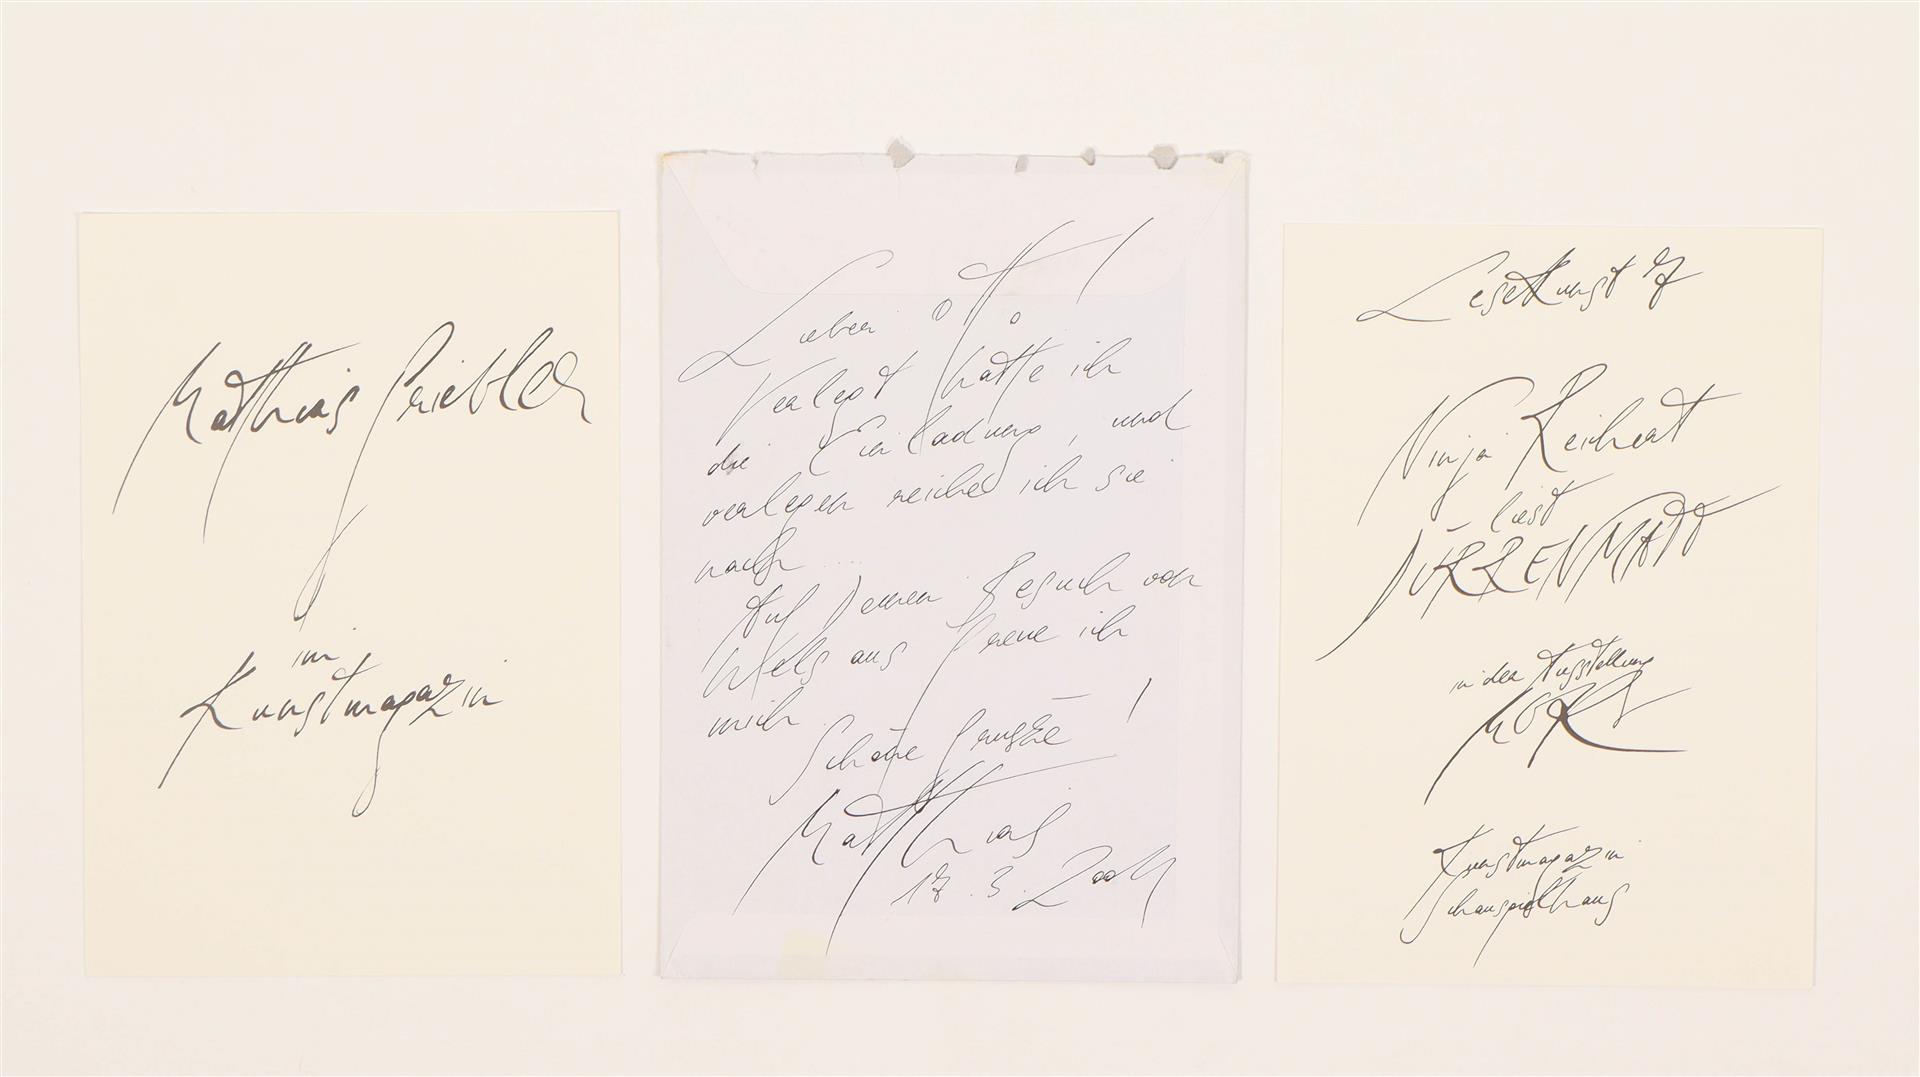 Matthias Griebler
im
Kunstmagazin
Lieber Ött!
Verlegt hätte ich
die Einladung, und
verlegen reiche ich sie
nach ....
Auf Deinen Besuch von
Wels aus freue ich
mich.
Schöne Grüsze!
Matthias
17.3.2004
Lesekunst 7
Ninja Reichert
liest
DÜRRENMATT
in der Ausstellung
Kunstmagazin
Schauspielhaus